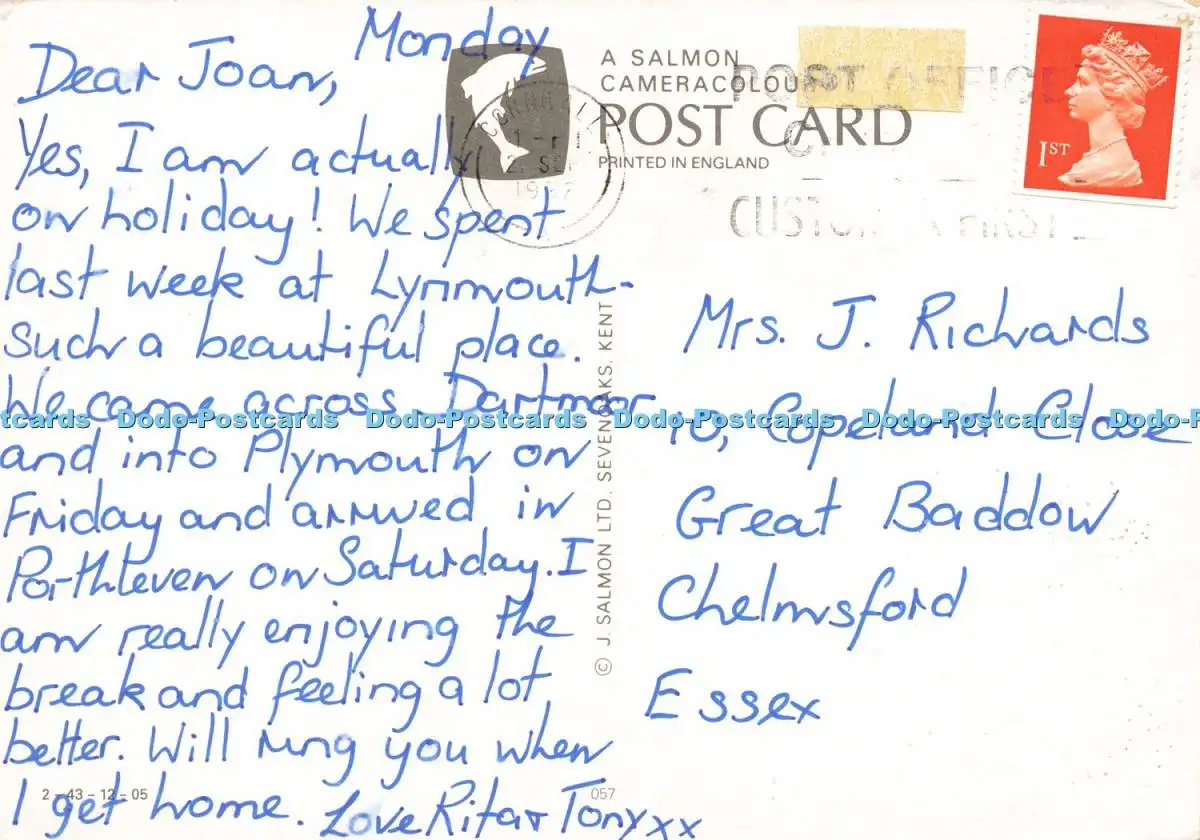 Monday
Dear Joan,
Yes, I am actually
on holiday! We spent
last week at Lynmouth-
such a beautiful place.
We came across Dartmoor
and into Plymouth on
Friday and arrived in
Porthleven on Saturday. I
am really enjoying the
break and feeling a lot
better. Will ring you when
I get home. Love Rita + Tony xx
2-43-12-05
057
A SALMON
CAMERACOLOUR
POST CARD
PRINTED IN ENGLAND
© J. SALMON LTD. SEVENOAKS. KENT
CORNWALL
SEP
POST OFFICE
CUSTOMER FIRST
1ST
Mrs. J. Richards
10, Copeland Close
Great Baddow
Chelmsford
Essex
Dodo-Postcards Dodo-Postcards Dodo-Postcards Dodo-Postcards